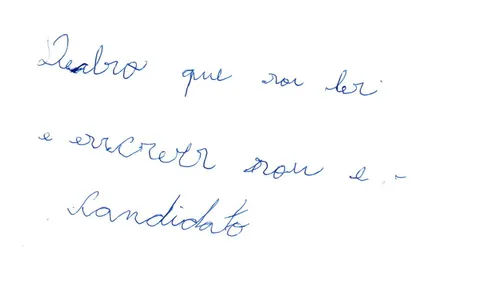 que sou ler
e escrever sou e
Candidato